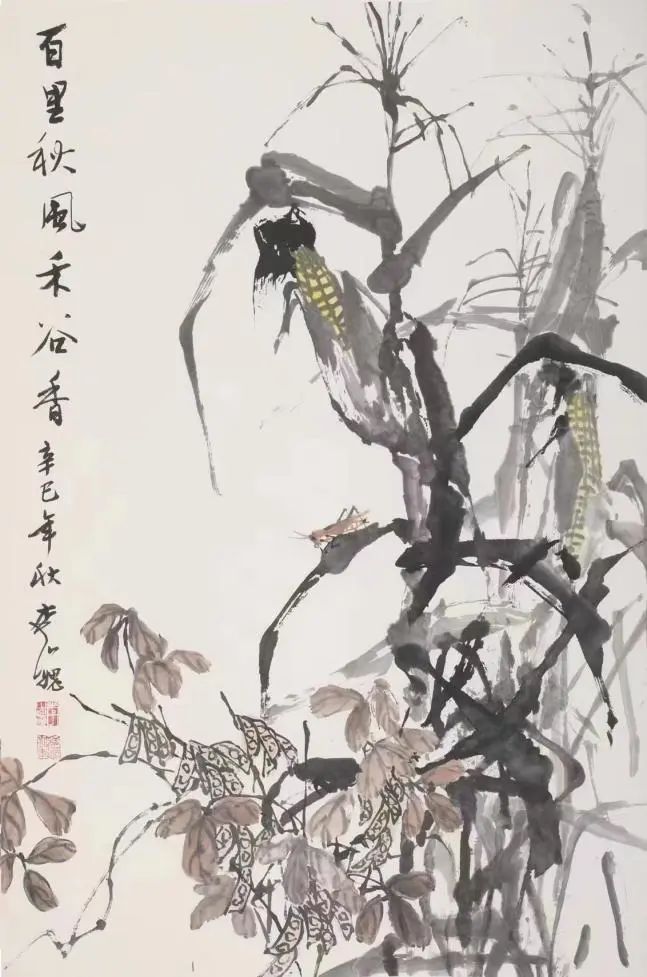 百里秋风禾谷香辛巳年秋